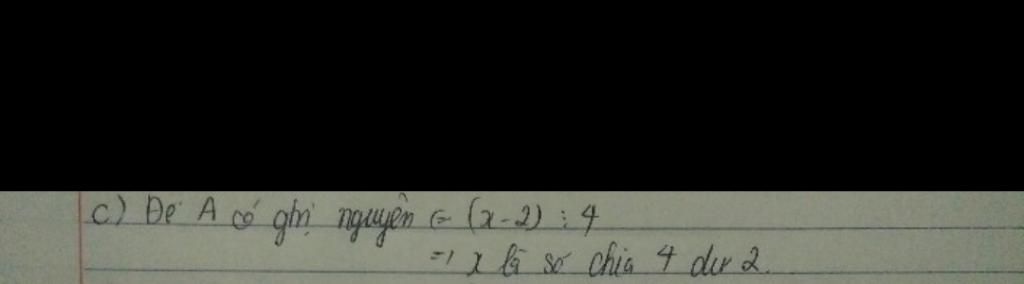 c) Để A có ghị nguyên ⇔ (x-2) ⋮ 4
=> x là số chia 4 dư 2.